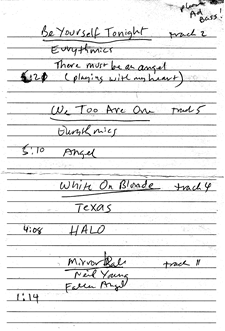 phone
Ad
Bass.
Be Yourself Tonight track 2
Eurythmics
There must be an angel
5:20 (playing with my heart)
We Too Are One track 5
Eurythmics
5:10 Angel
White On Blonde track 4
Texas
4:08 HALO
Mirror Ball track 11
Neil Young
Fallen Angel
1:14